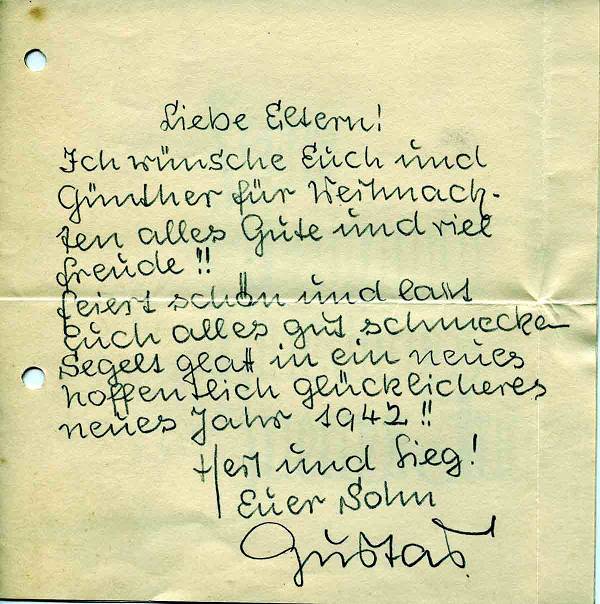 Liebe Eltern!
Ich wünsche Euch und
Günther für Weihnach-
ten alles Gute und viel
Freude!!
Feiert schön und lasst
Euch alles gut schmecken
Segelt glatt in ein neues
hoffentlich glücklicheres
neues Jahr 1942!!
Heil und Sieg!
Euer Sohn
Gustav.